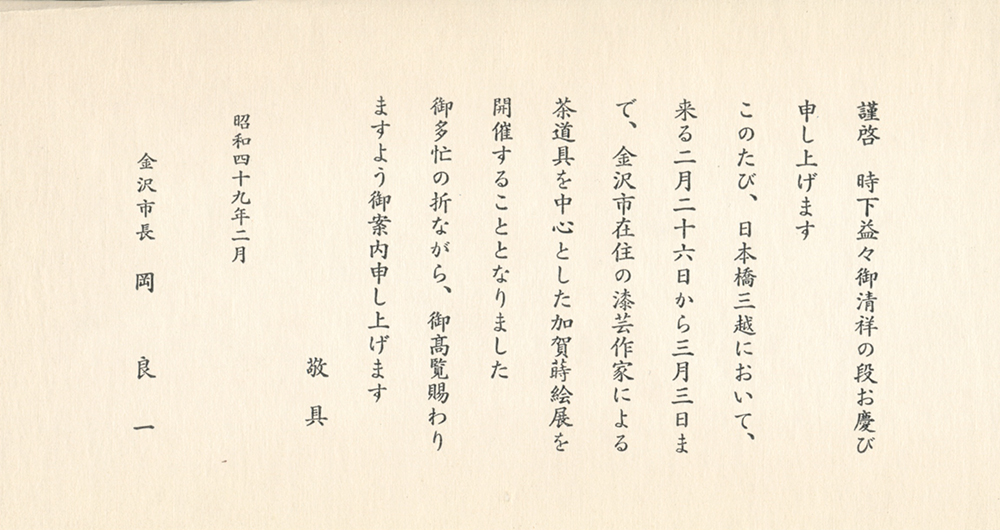 謹啓　時下益々御清祥の段お慶び
申し上げます
このたび、日本橋三越において、
来る二月二十六日から三月三日ま
で、金沢市在住の漆芸作家による
茶道具を中心とした加賀蒔絵展を
開催することとなりました
御多忙の折ながら、御高覧賜わり
ますよう御案内申し上げます
敬具
昭和四十九年二月
金沢市長　岡　良一